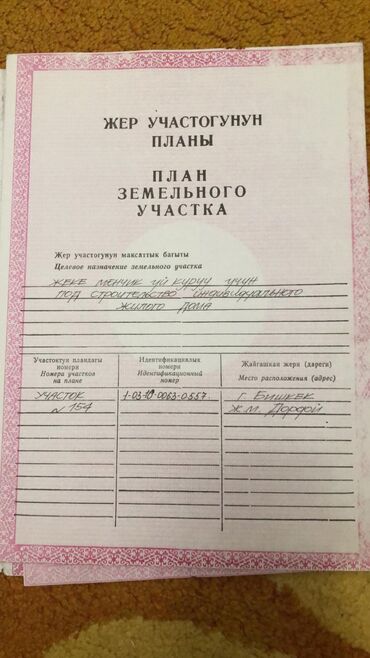 ЖЕР УЧАСТОГУНУН
ПЛАНЫ
ПЛАН
ЗЕМЕЛЬНОГО
УЧАСТКА
Жер участогунун максаттык багыты
Целевое назначение земельного участка
ЖЕКЕ МЕНЧИК ҮЙ КУРУУ ҮЧҮН
ПОД СТРОИТЕЛЬСТВО ИНДИВИДУАЛЬНОГО
ЖИЛОГО ДОМА
Участоктун пландагы номери
Номера участков на плане
Идентификациялык номери
Идентификационный номер
Жайгашкан жери (дареги)
Место расположения (адрес)
УЧАСТОК 1-03-10-0063-0557. Г. БИШКЕК
N 154 Ж.М. ДОРДОЙ